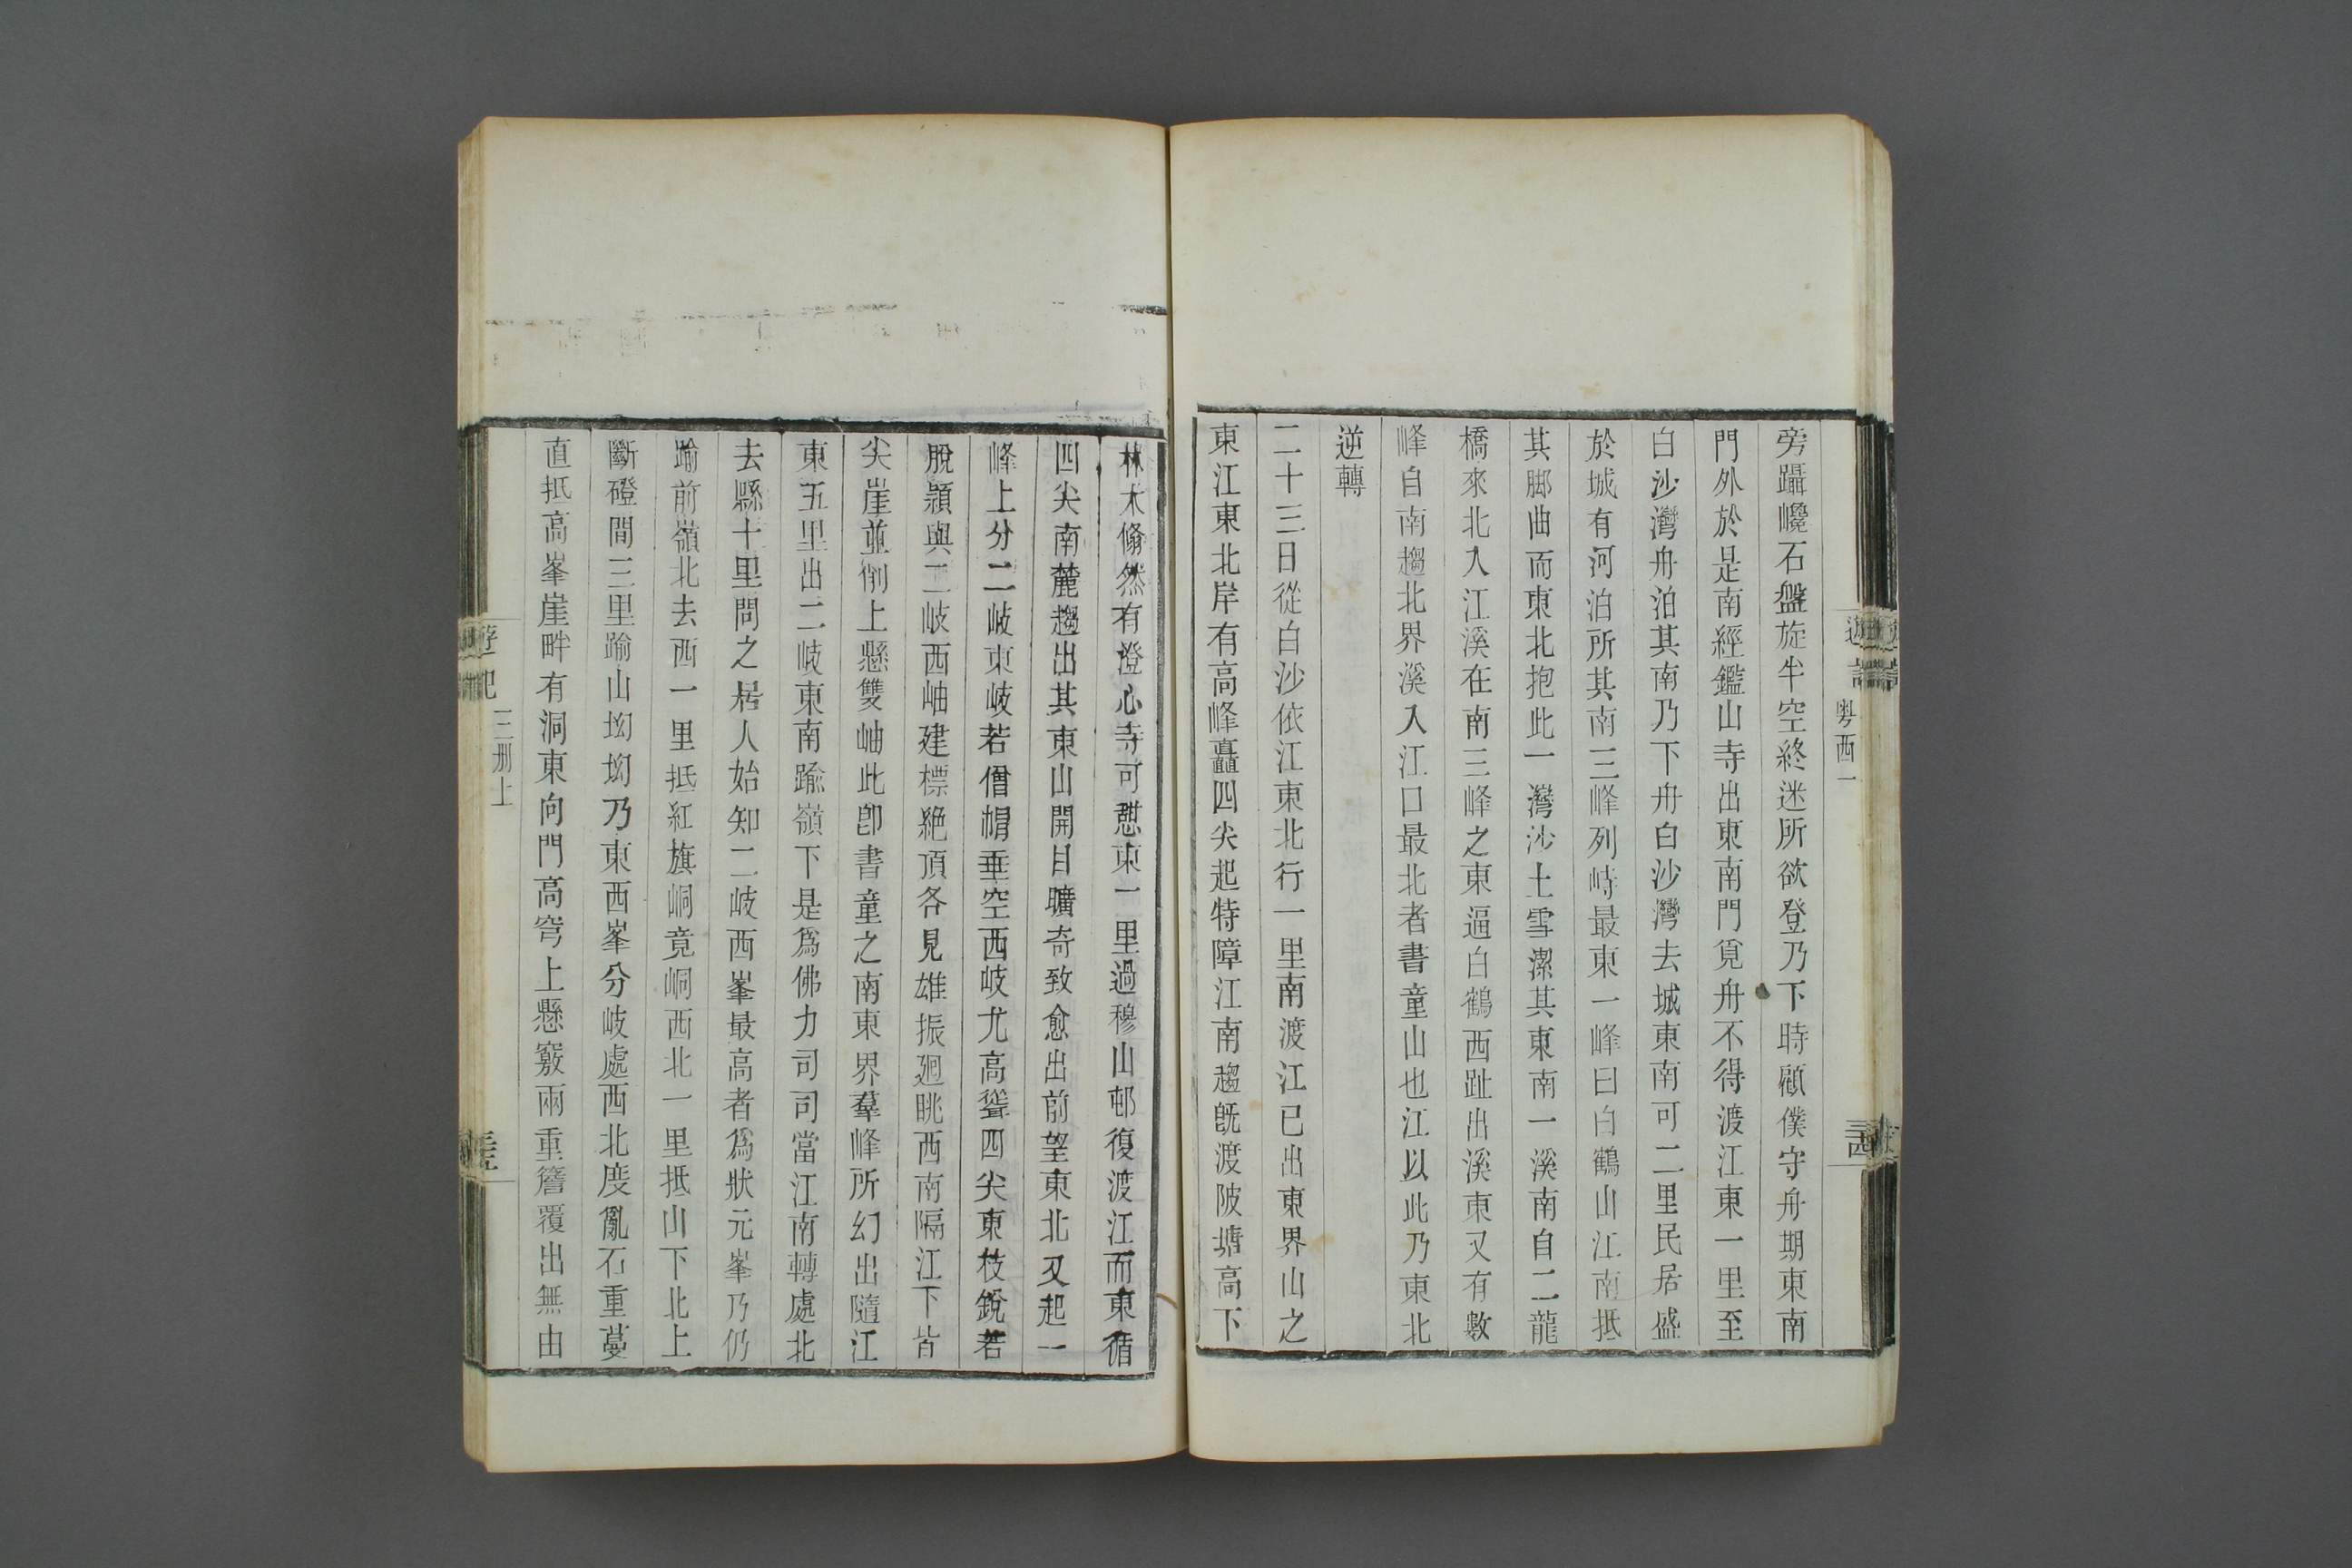 旁躡巉石盤旋半空終迷所欲登乃下時顧僕守舟期東南
門外於是南經鑑山寺出東南門覓舟不得渡江東一里至
白沙灣舟泊其南乃下舟白沙灣去城東南可二里民居盛
於城有河泊所其南三峰列峙最東一峰曰白鶴山江南抵
其脚曲而東北抱此一灣沙土雪潔其東南一溪南自二龍
橋來北入江溪在南三峰之東逼白鶴西趾出溪東又有數
峰自南趨北界溪入江口最北者書童山也江以此乃東北
逆轉
二十三日從白沙依江東北行一里南渡江已出東界山之
東江東北岸有高峰矗四尖起特障江南趨旣渡陂塘高下
粤西一
三四
林木翛然有澄心寺可憇東一里過穆山邨復渡江而東循
四尖南麓趨出其東山開目曠奇致愈出前望東北又起一
峰上分二岐東岐若僧帽垂空西岐尤高聳四尖東枝銳若
脫頴與二岐西岫建標絕頂各見雄振廻眺西南隔江下皆
尖崖並削上懸雙岫此卽書童之南東界羣峰所幻出隨江
東五里出二岐東南踰嶺下是爲佛力司司當江南轉處北
去縣十里問之居人始知二岐西峯最高者爲狀元峯乃仍
踰前嶺北去西一里抵紅旗峒竟峒西北一里抵山下北上
斷磴間三里踰山坳坳乃東西峯分岐處西北度亂石重蔓
直抵高峯崖畔有洞東向門高穹上懸竅兩重簷覆出無由
遊記
三册上
三五